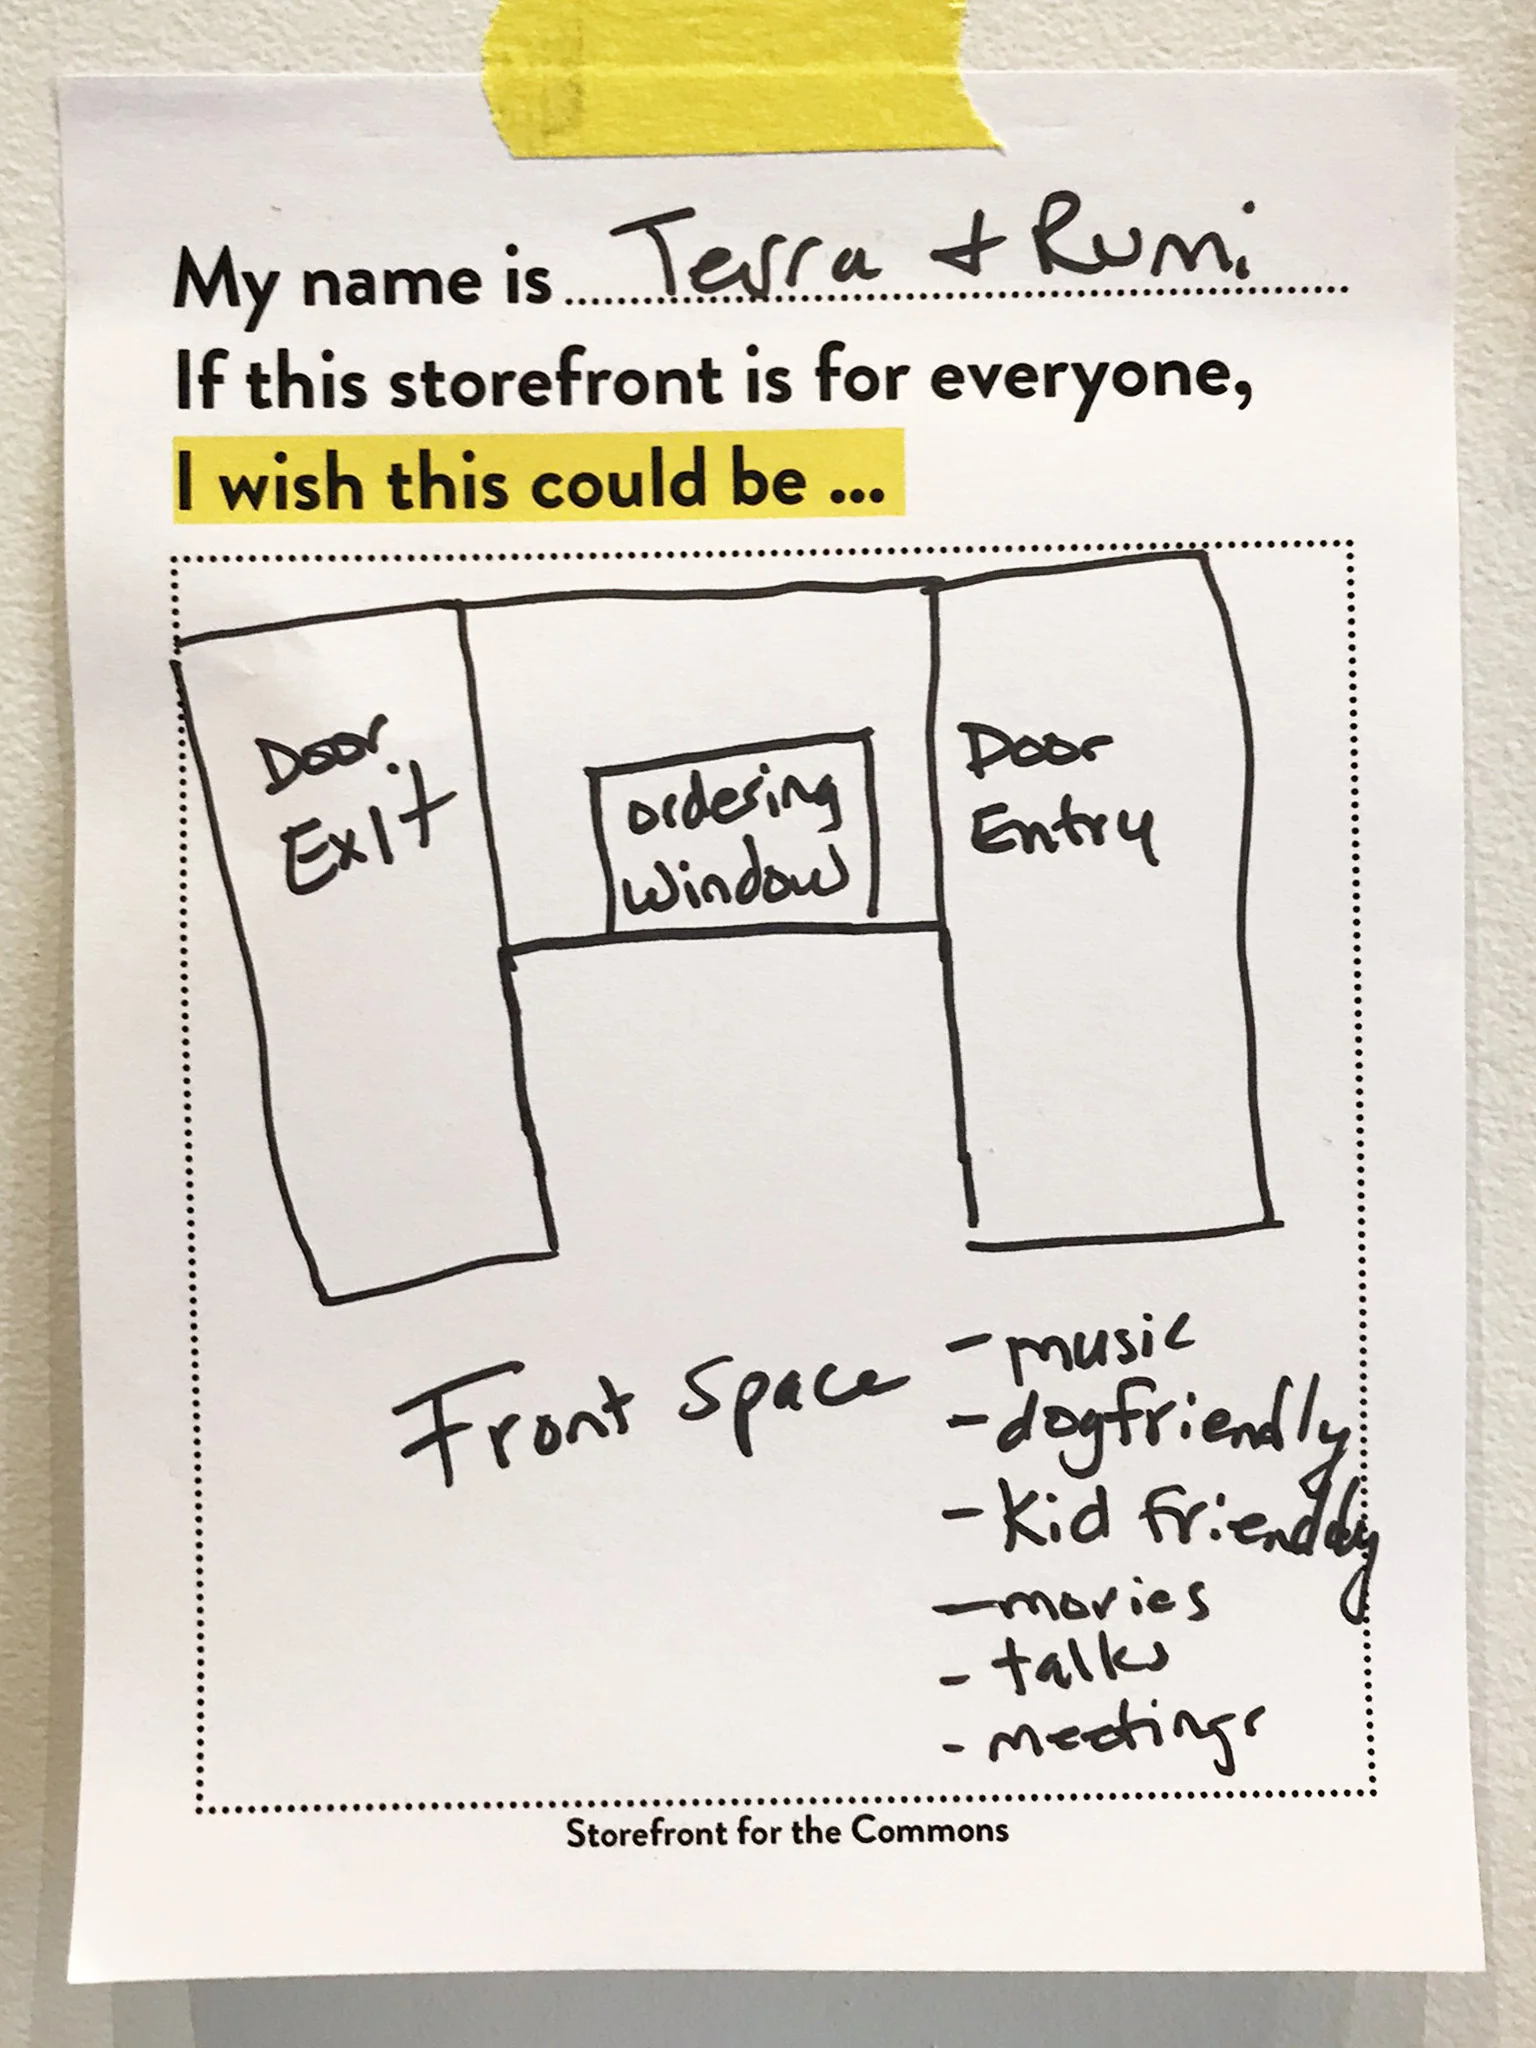 My name is Terra + Rumi
If this storefront is for everyone,
I wish this could be ...
Door
Exit
ordering
window
Door
Entry
Front Space
- music
- dogfriendly
- Kid friendly
- movies
- talks
- meetings
Storefront for the Commons